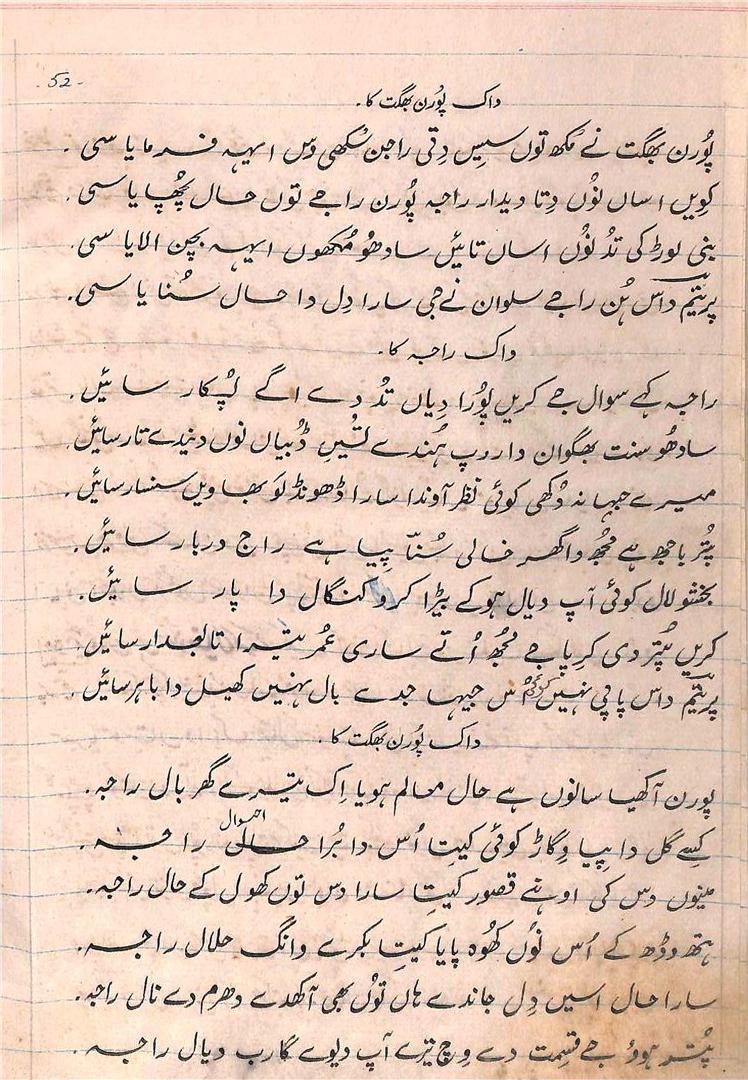 52
واک پُورن بھگت کا۔
پُورن بھگت نے مُکھ توں سیس دِتی راجن سُکھی وس ایہہ فرمایا سی ۔
کویں اساں نُوں دِتا دیدار راجہ پُورن راجے توں حال چھُپایا سی۔
بنی لوڑ کی تُد نُوں اساں تائیں سادھو مُکھوں ایہہ بچن الایا سی۔
پریتم داس ہُن راجے سلوان نے جی سارا دِل دا حال سُنایا سی۔
واک راجہ کا۔
راجہ کہے سوال جے کریں پُورا دِیاں تُد دے اگے پُکار سائیں۔
سادھُو سنت بھگوان دا روپ ہُندے تُسیں ڈُبیاں نوں دیندے تار سائیں۔
میرے جہا نہ دُکھی کوئی نظر آوندا سارا ڈھونڈ لَو بھاویں سنسار سائیں۔
پُتر باجھ ہے مُجھ دا گھر خالی سُنّا پیا ہے راج دربار سائیں۔
بخشو لال کوئی آپ دیال ہوکے بیڑا کرو کنگال دا پار سائیں۔
کریں پُتر دی کرپا جے مُجھ اُتے ساری عُمر تیرا تابعدار سائیں۔
پریتم داس پاپی نہیں کوئی اُس جیہا جدے بال نہیں کھیل دا باہر سائیں۔
واک پُورن بھگت کا ۔
پورن آکھیا سانوں ہے حال معالم ہویا اِک تیرے گھر بال راجہ۔
کِسے گل دا پیا وِگاڑ کوئی کیتا اُس دا بُرا احوال راجہ۔
مینوں دس کی اوہنے قصور کیتا سارا دس توں کھول کے حال راجہ۔
ہتھ وڈھ کے اُس نُوں کھُوہ پایا کیتا بکرے وانگ حلال راجہ۔
سارا حال اسیں دِل جاندے ہاں توں بھی آکھدے دھرم دے نال راجہ۔
پُتر ہووُ جے قسمت دے وِچ تیرے آپ دیوے گا رب دیال راجہ۔